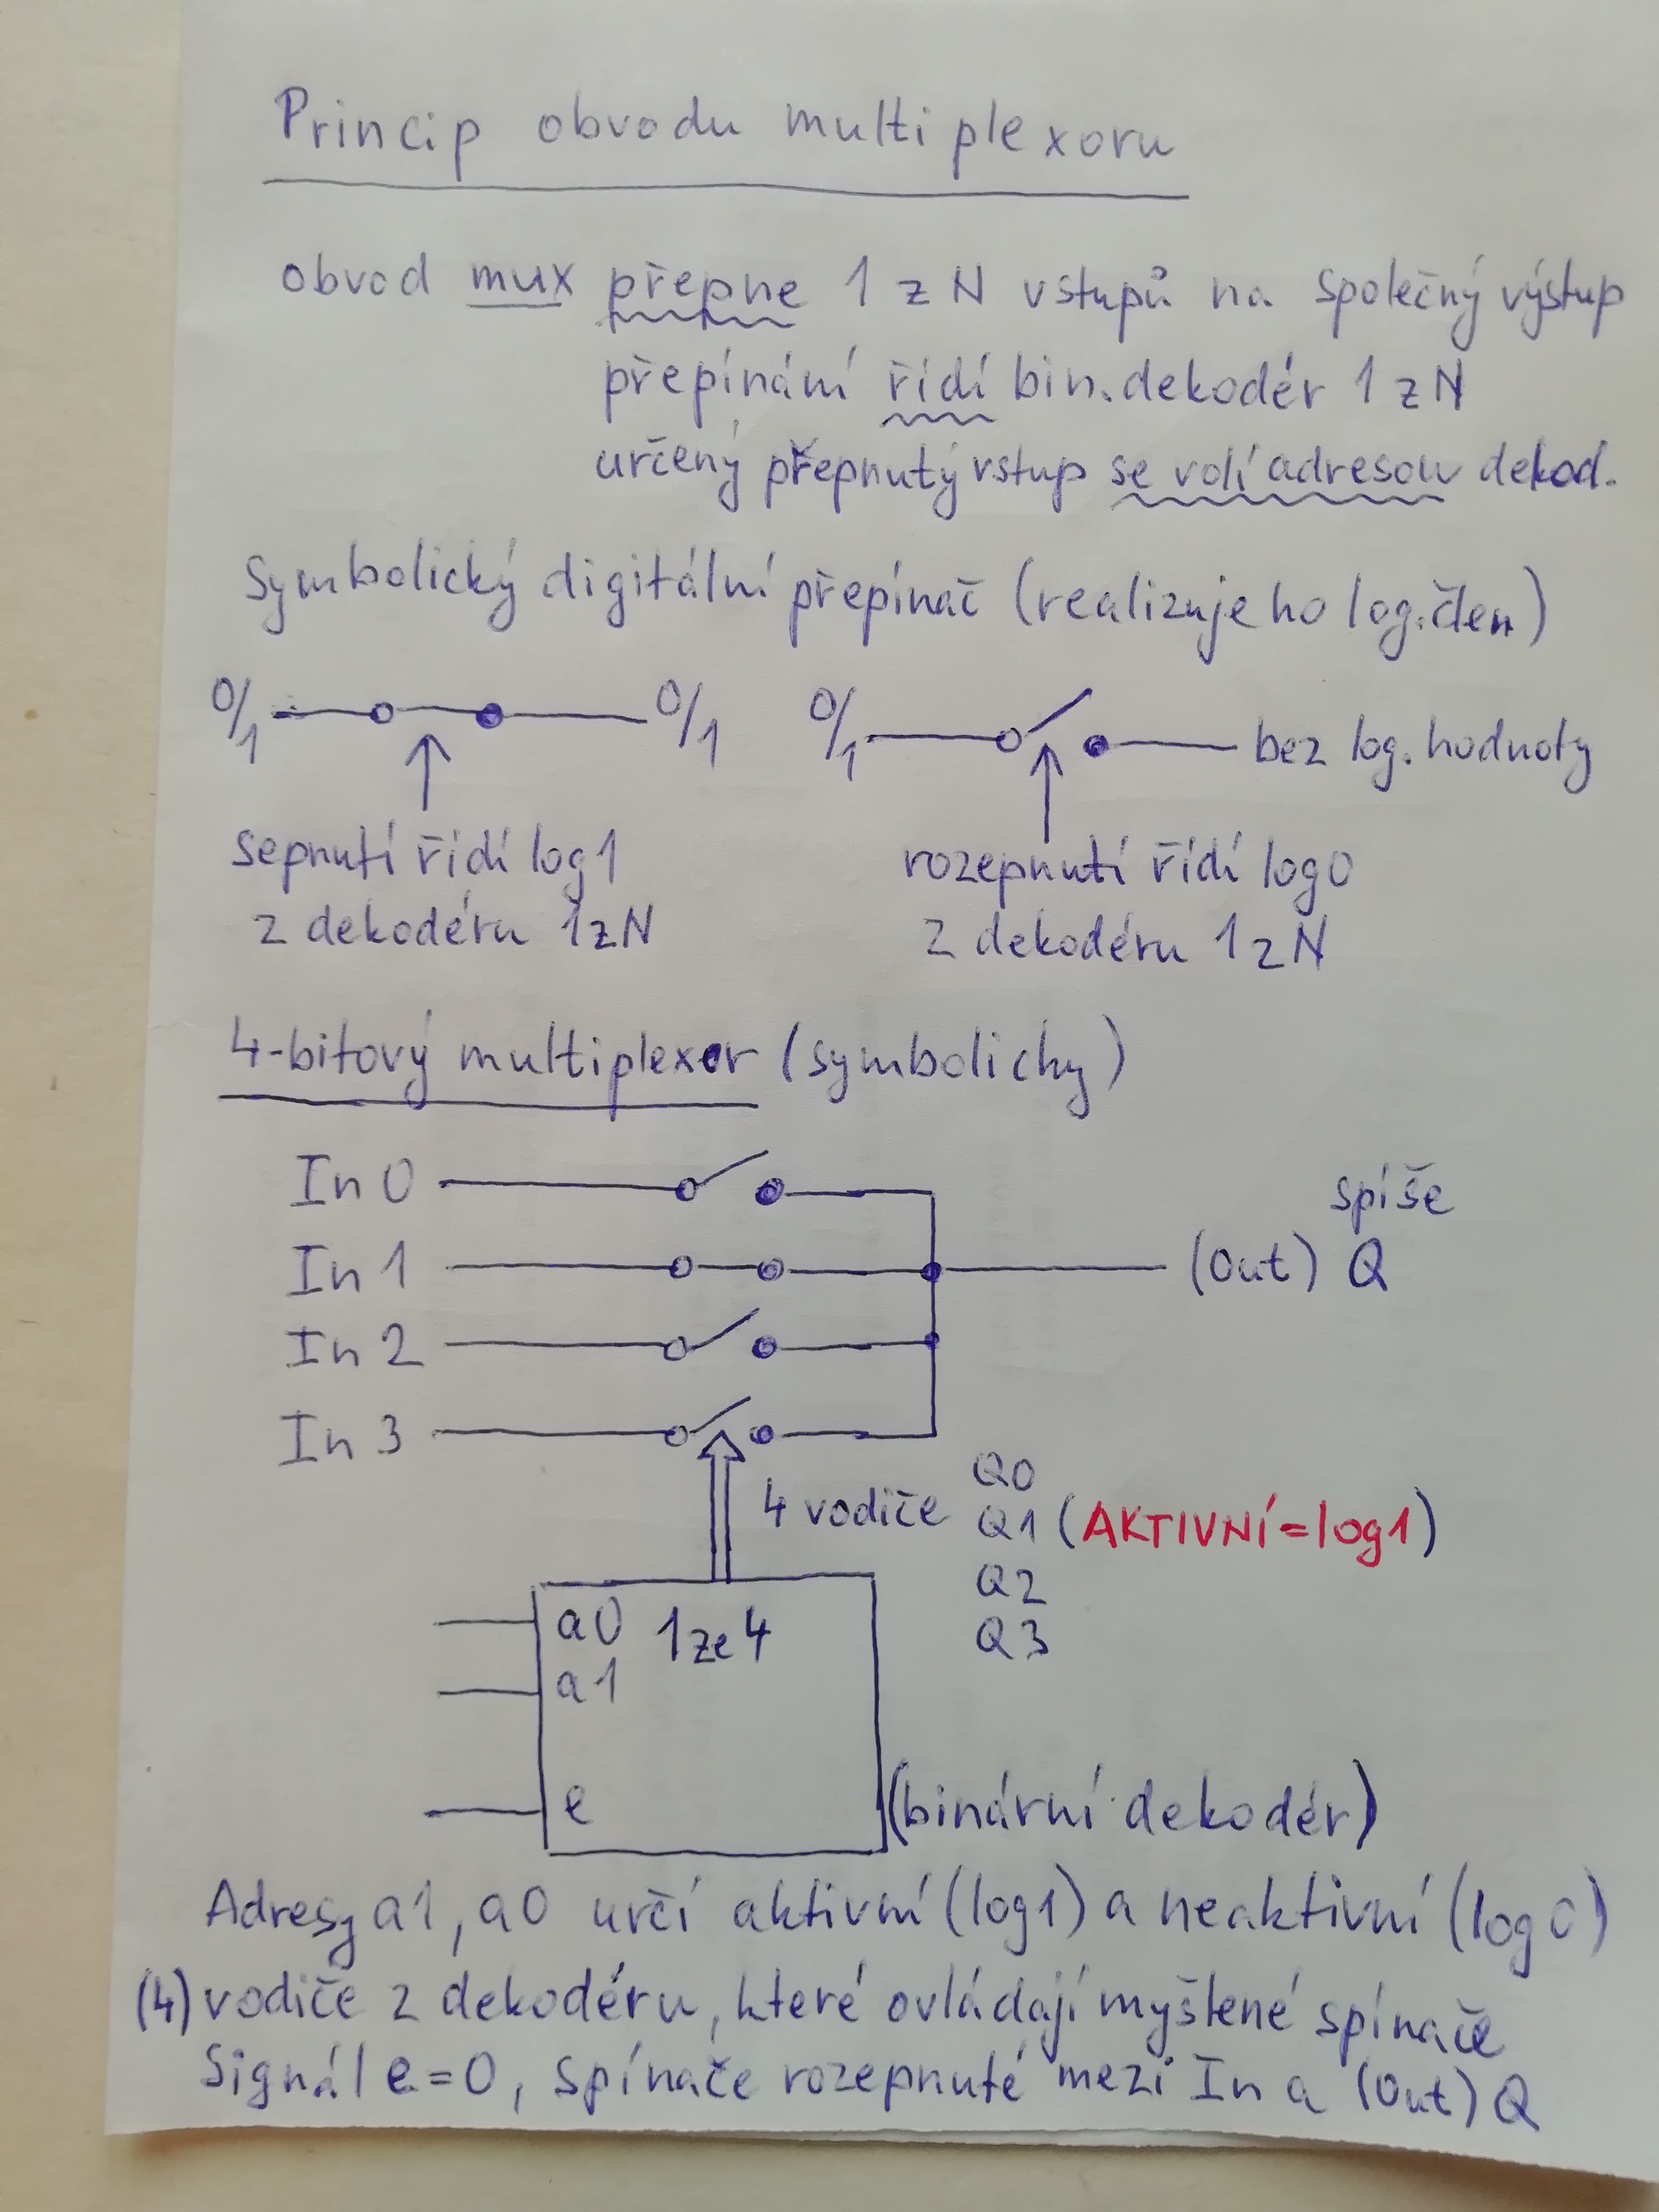 Princip obvodu multiplexoru
obvod mux přepne 1 z N vstupů na společný výstup
přepínání řídí bin. dekodér 1 z N
určený přepnutý vstup se volí adresou dekod.
Symbolický digitální přepínač (realizuje ho log. člen)
0/1 0/1 0/1 bez log. hodnoty
sepnutí řídí log1 rozepnutí řídí log0
z dekodéru 1zN z dekodéru 1zN
4-bitový multiplexor (symbolicky)
In 0
spíše
In 1 (Out) Q
In 2
In 3
Q0
4 vodiče Q1 (AKTIVNÍ=log1)
Q2
a0 1ze4 Q3
a1
e (binární dekodér)
Adresy a1, a0 určí aktivní (log1) a neaktivní (log0)
(4) vodiče z dekodéru, které ovládají myšlené spínače
Signál e=0, spínače rozepnuté mezi In a (Out) Q